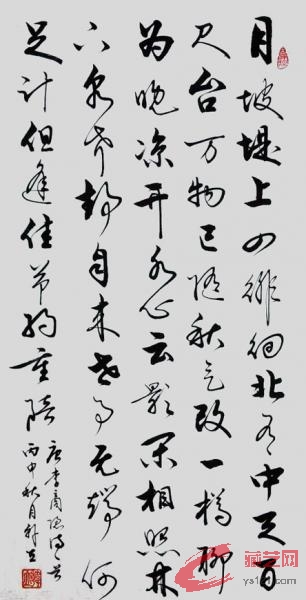 月坡堤上四徘徊北有中天百
尺台万物已随秋气改一樽聊
为晚凉开水心云影闲相照林
下泉声静自来世事无端何
足计但逢佳节约重陪
唐李商隐诗
丙申秋月
藏艺网